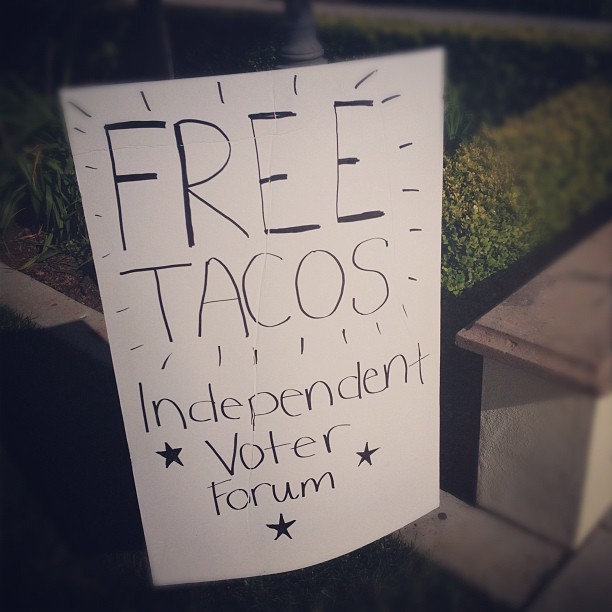 FREE
TACOS
Independent
Voter
Forum